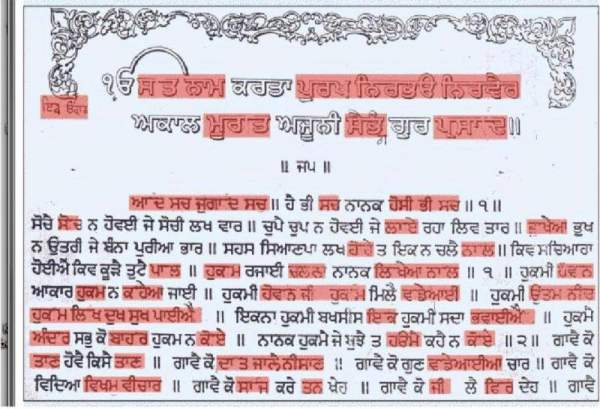 ੴ ਸਤਿ ਨਾਮੁ ਕਰਤਾ ਪੁਰਖੁ ਨਿਰਭਉ ਨਿਰਵੈਰ
ਅਕਾਲ ਮੂਰਤਿ ਅਜੂਨੀ ਸੈਭੰ ਗੁਰ ਪ੍ਰਸਾਦਿ॥
॥ ਜਪੁ ॥
ਆਦਿ ਸਚ ਜੁਗਾਦਿ ਸਚ॥ ਹੈ ਭੀ ਸਚ ਨਾਨਕ ਹੋਸੀ ਭੀ ਸਚ॥੧॥
ਸੋਚੈ ਸੋਚਿ ਨ ਹੋਵਈ ਜੇ ਸੋਚੀ ਲਖ ਵਾਰ॥ ਚੁਪੈ ਚੁਪ ਨ ਹੋਵਈ ਜੇ ਲਾਇ ਰਹਾ ਲਿਵ ਤਾਰ॥ ਭੁਖਿਆ ਭੁਖ
ਨ ਉਤਰੀ ਜੇ ਬੰਨਾ ਪੁਰੀਆ ਭਾਰ॥ ਸਹਸ ਸਿਆਣਪਾ ਲਖ ਹੋਹਿ ਤ ਇਕ ਨ ਚਲੈ ਨਾਲ॥ ਕਿਵ ਸਚਿਆਰਾ
ਹੋਈਐ ਕਿਵ ਕੂੜੈ ਤੁਟੈ ਪਾਲ॥ ਹੁਕਮ ਰਜਾਈ ਚਲਣਾ ਨਾਨਕ ਲਿਖਿਆ ਨਾਲ॥੧॥ ਹੁਕਮੀ ਹੋਵਨ
ਆਕਾਰ ਹੁਕਮ ਨ ਕਹਿਆ ਜਾਈ॥ ਹੁਕਮੀ ਹੋਵਨ ਜੀ ਹੁਕਮਿ ਮਿਲੈ ਵਡਿਆਈ॥ ਹੁਕਮੀ ਉਤਮ ਨੀਚ
ਹੁਕਮਿ ਲਿਖਿ ਦੁਖ ਸੁਖ ਪਾਈਐ॥ ਇਕਨਾ ਹੁਕਮੀ ਬਖਸੀਸ ਇਕਿ ਹੁਕਮੀ ਸਦਾ ਭਵਾਈਐ॥ ਹੁਕਮੈ
ਅੰਦਰਿ ਸਭੁ ਕੋ ਬਾਹਰਿ ਹੁਕਮ ਨ ਕੋਇ॥ ਨਾਨਕ ਹੁਕਮੈ ਜੇ ਬੁਝੈ ਤ ਹਉਮੈ ਕਹੈ ਨ ਕੋਇ॥੨॥ ਗਾਵੈ ਕੋ
ਤਾਣ ਹੋਵੈ ਕਿਸੈ ਤਾਣ॥ ਗਾਵੈ ਕੋ ਦਾਤਿ ਜਾਣੈ ਨੀਸਾਣ॥ ਗਾਵੈ ਕੋ ਗੁਣ ਵਡਿਆਈਆ ਚਾਰ॥ ਗਾਵੈ ਕੋ
ਵਿਦਿਆ ਵਿਖਮ ਵੀਚਾਰ॥ ਗਾਵੈ ਕੋ ਸਾਜਿ ਕਰੇ ਤਨ ਖੇਹ॥ ਗਾਵੈ ਕੋ ਜੀ ਲੈ ਫਿਰਿ ਦੇਹ॥ ਗਾਵੈ